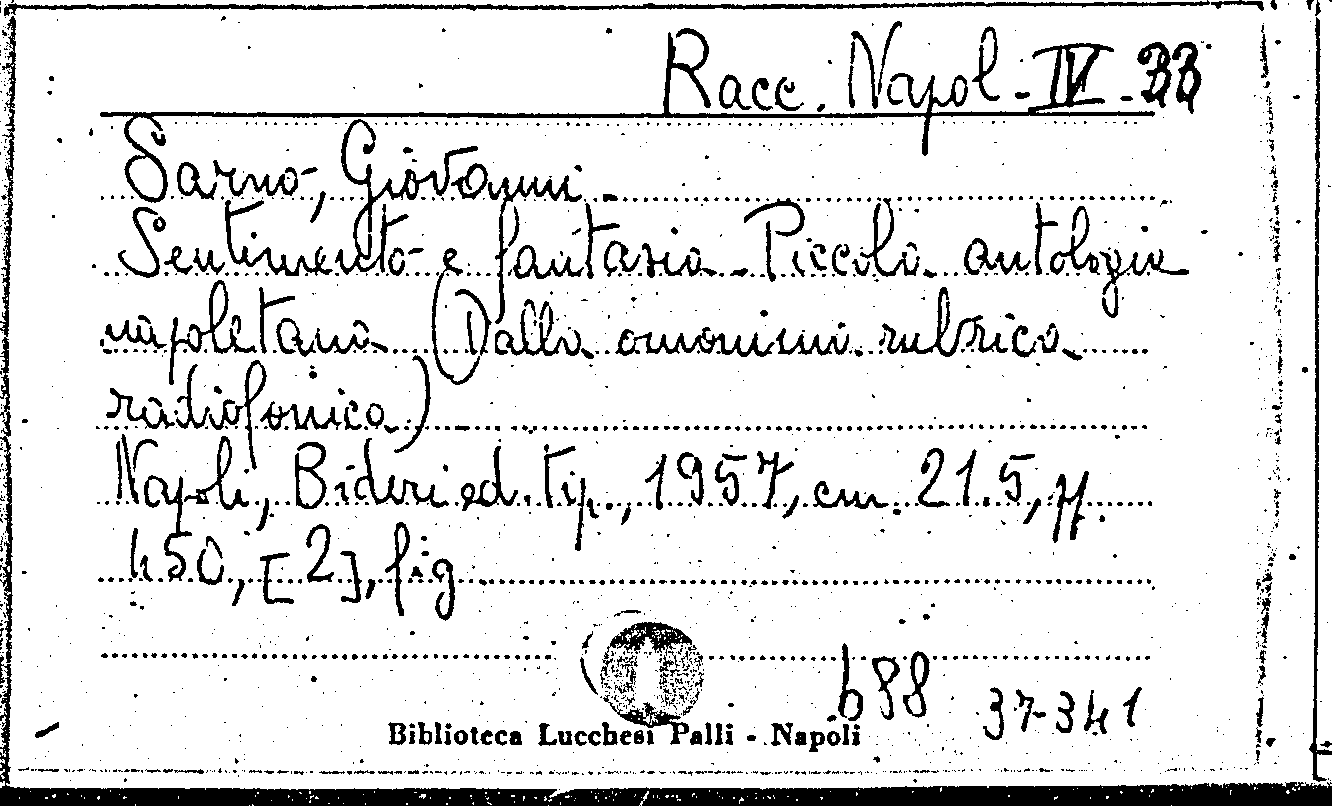 Racc. Napol - IV - 33
Sarno, Giovanni -
Sentimento e fantasia - Piccola antologia
napoletana (Dalla omonima rubrica
radiofonica)
Napoli, Bideri ed. tip., 1957, cm. 21.5, pp.
450, [2], fig
688 37-341
Biblioteca Lucchesi Palli - Napoli